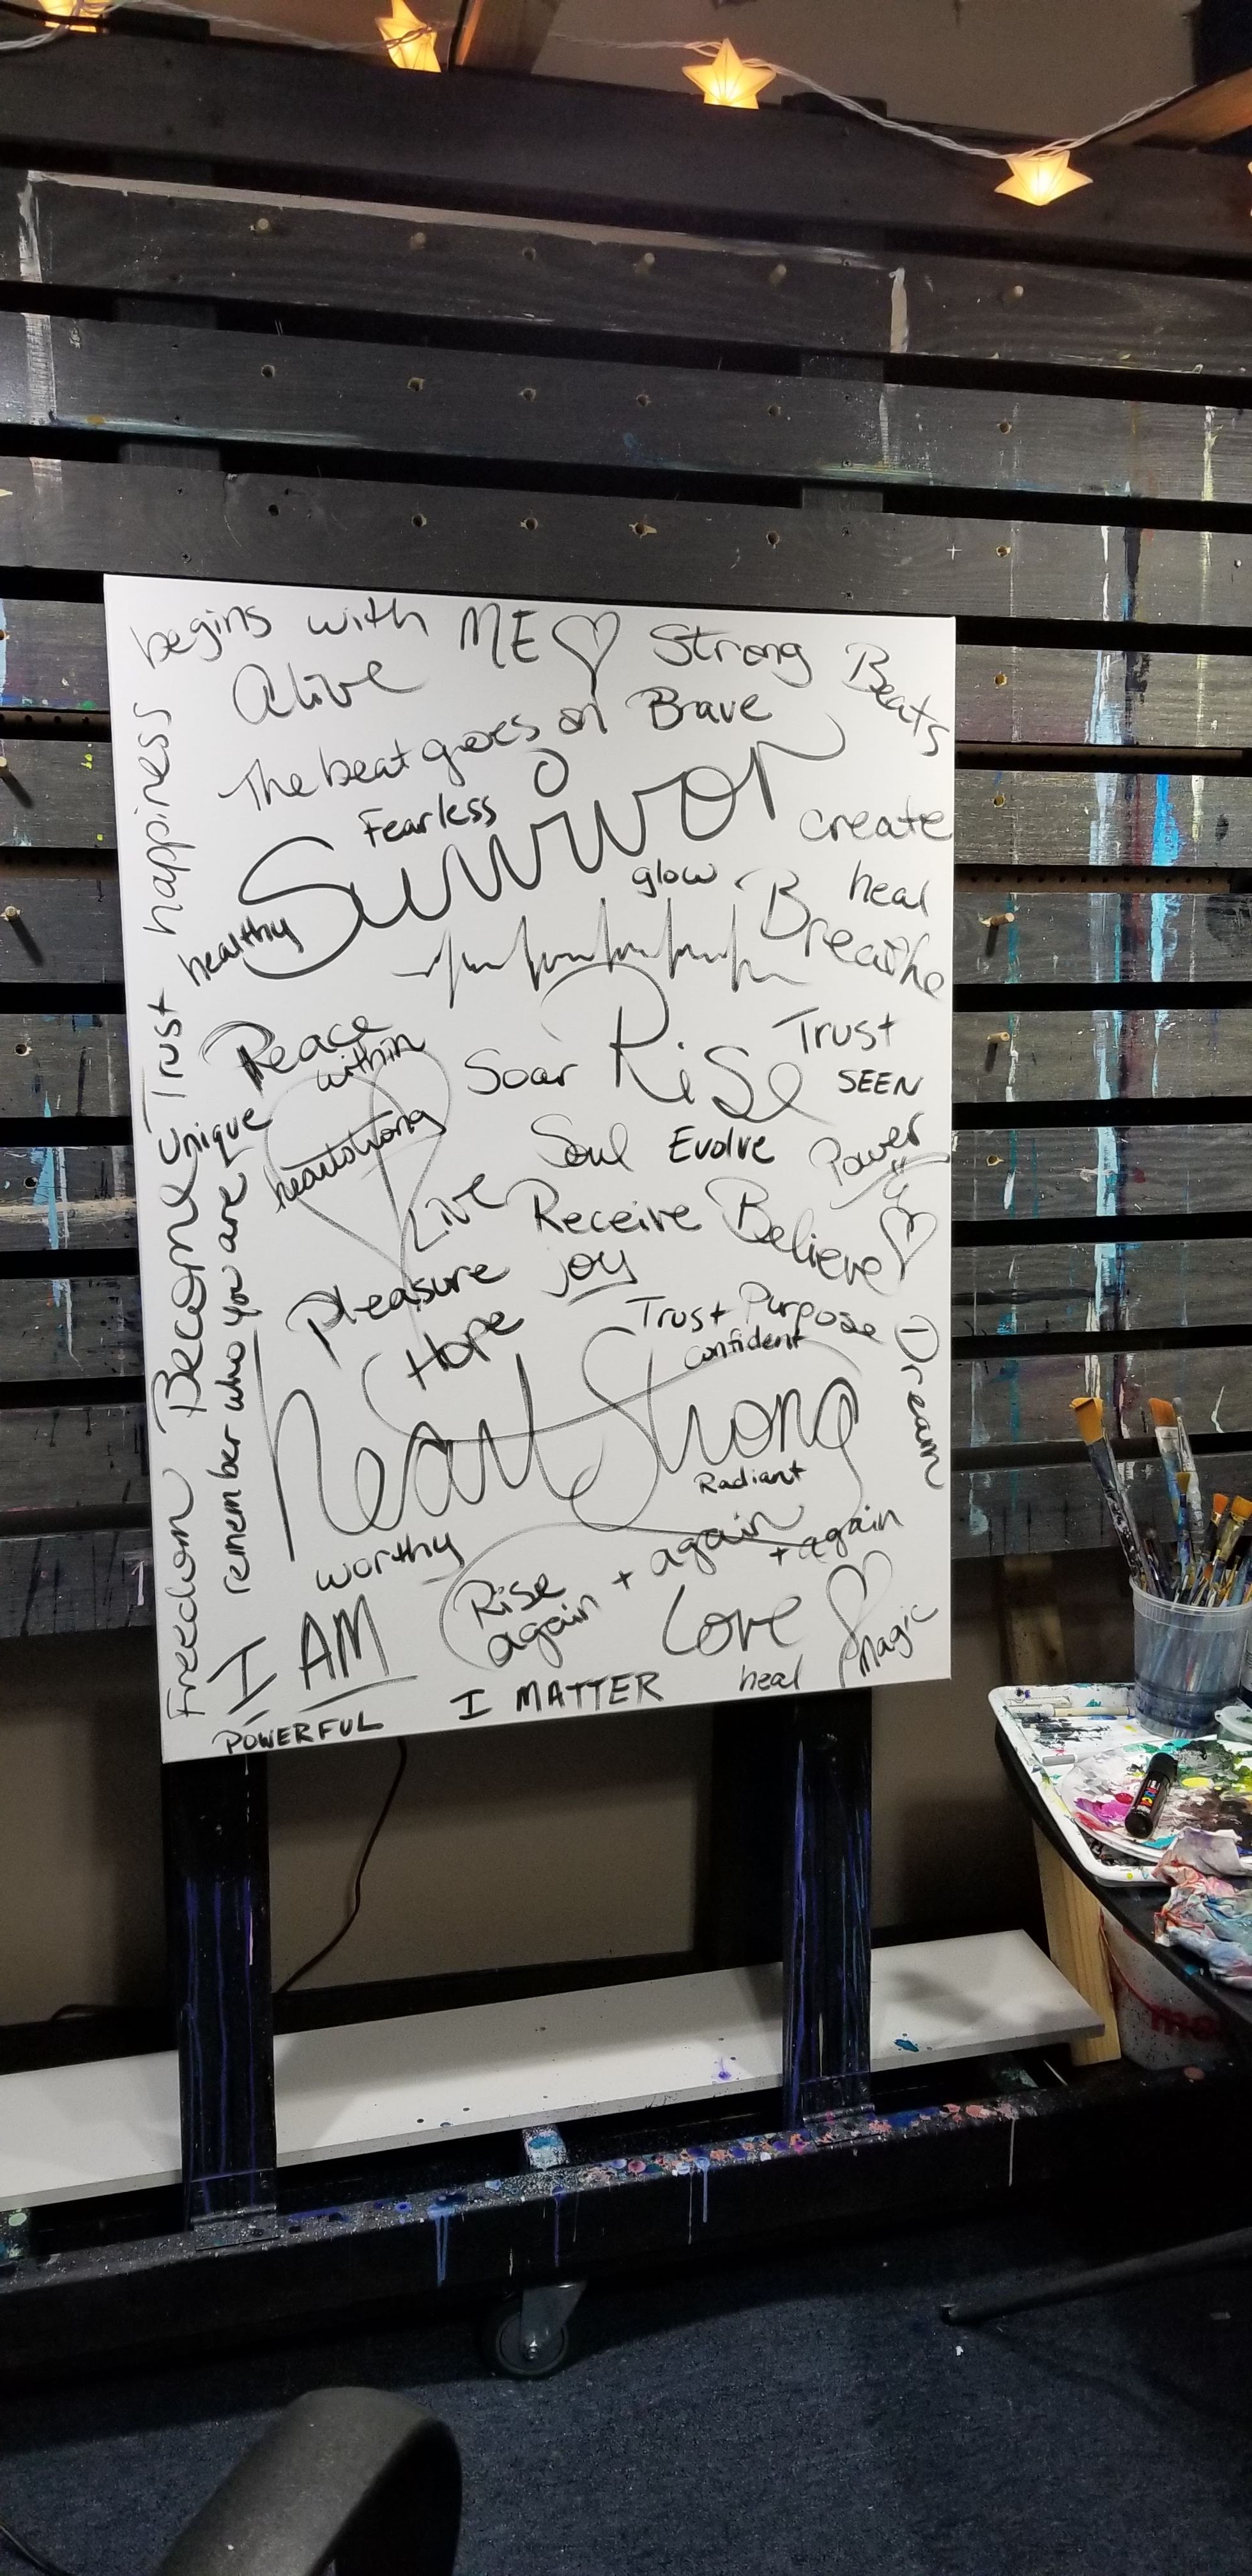 happiness begins with ME
Strong
Beats
Alive
The beat goes on
Brave
Fearless
Survivor
create
glow
heal
healthy
Breathe
Trust
Peace
within
Soar
Rise
Trust
SEEN
Unique
heartstrong
Soul
Evolve
Power
Live
Receive
Believe
Become
remember who you are
pleasure
joy
Trust Purpose
Hope
confident
Dream
heartStrong
Radiant
worthy
Rise
again + again
+ again
Freedom
I AM
Love
Magic
POWERFUL
I MATTER
heal